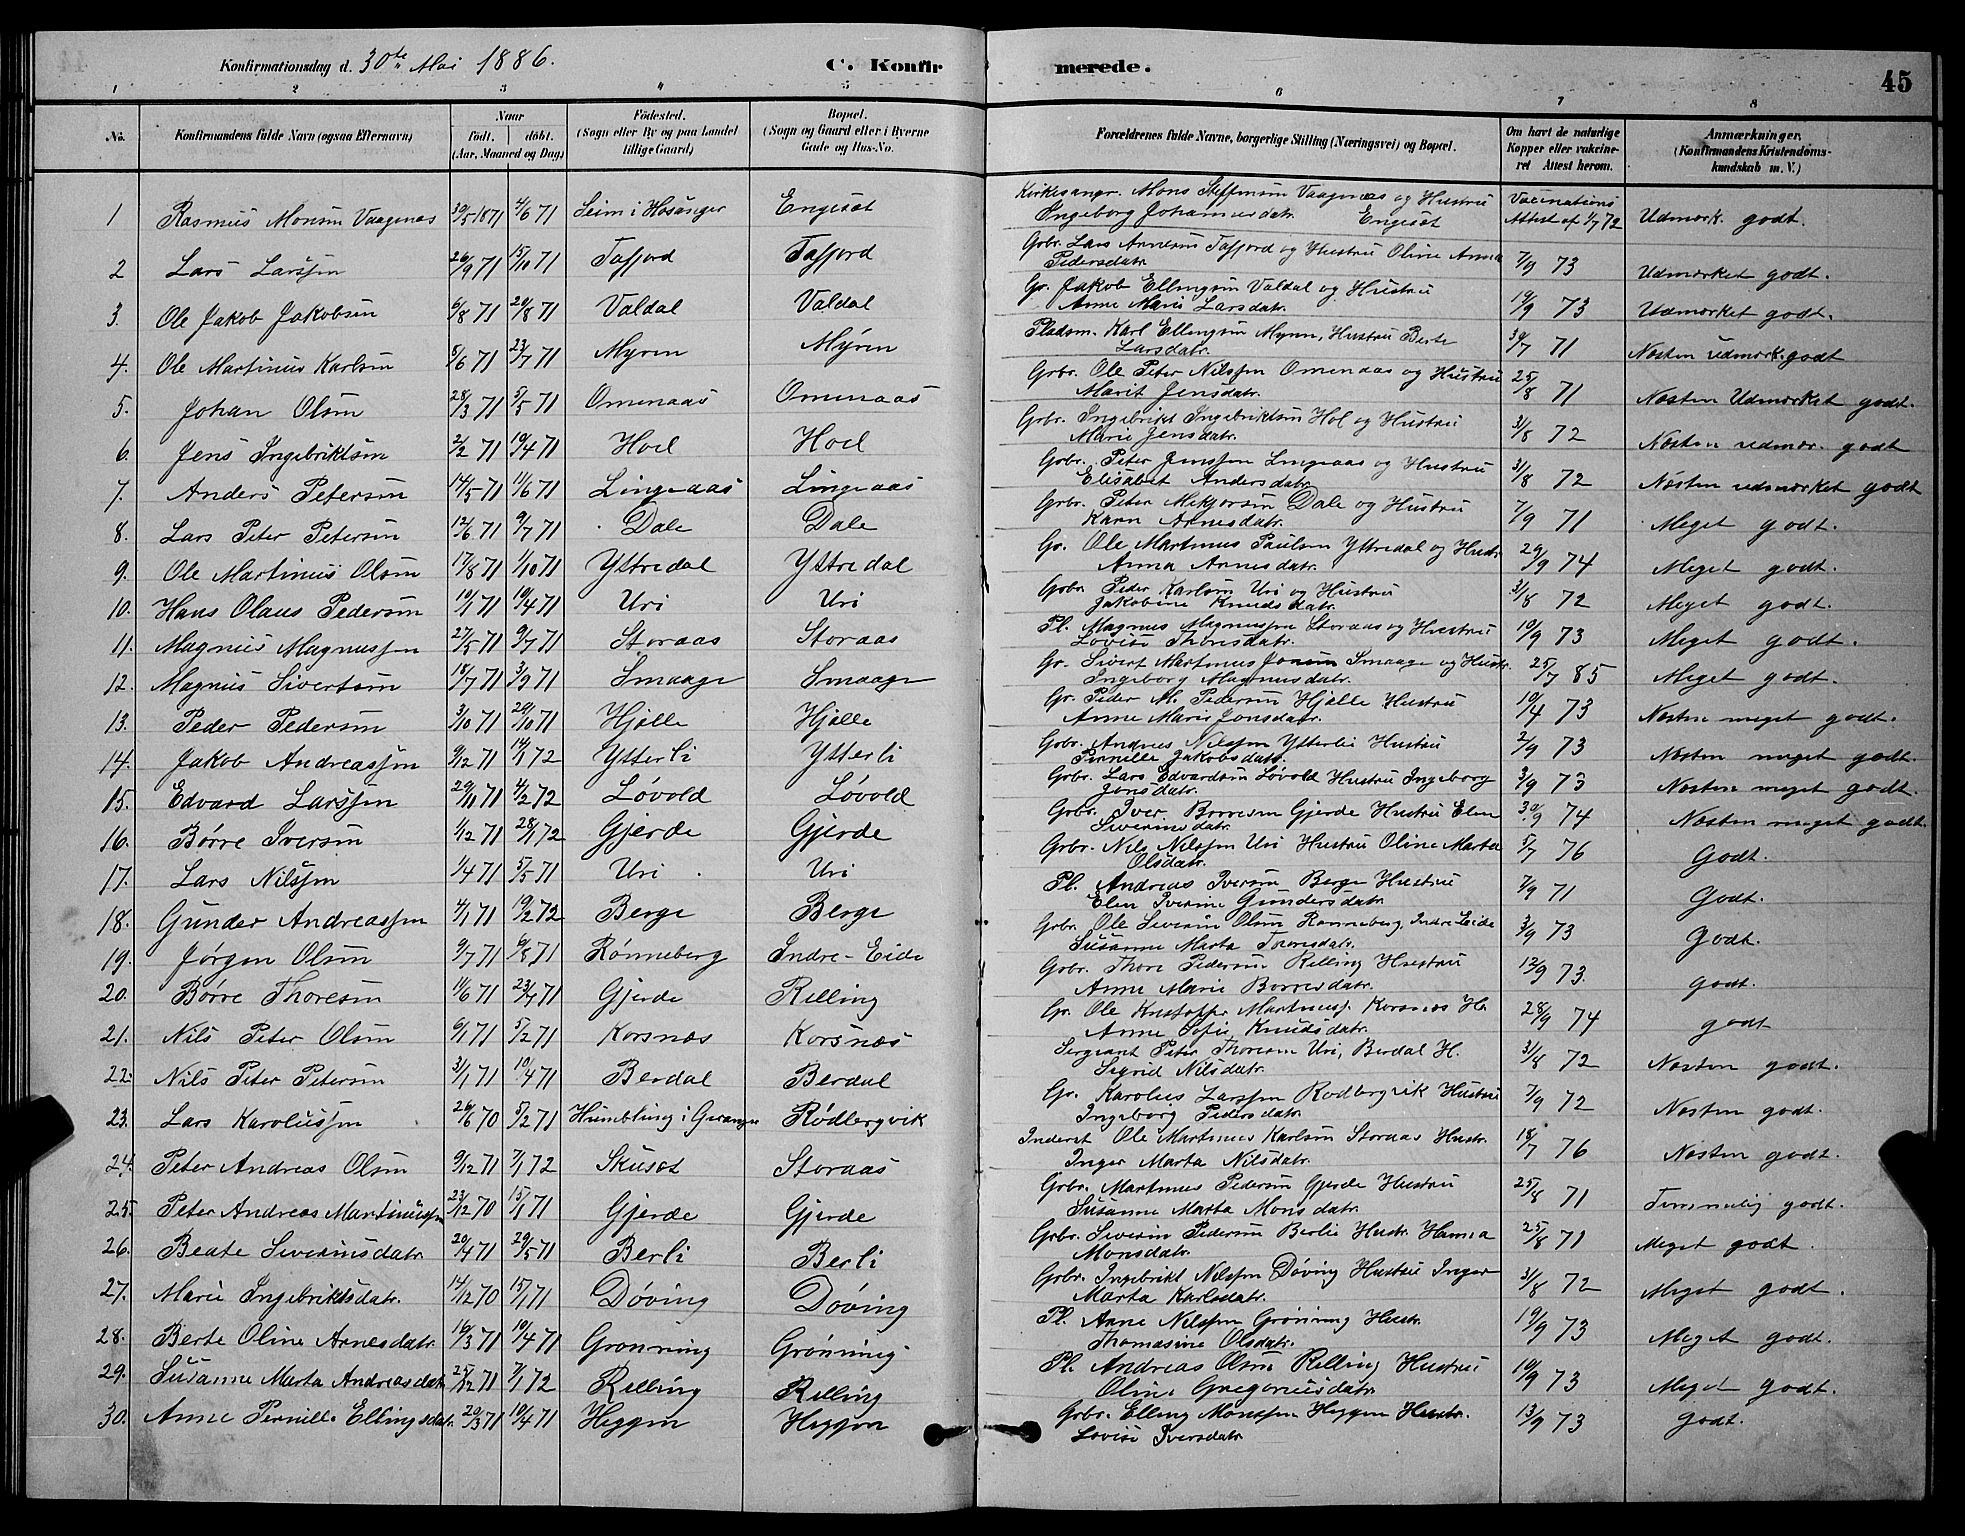 Konfirmationsdag d. 30te Mai 1886.
C. Konfirmerede.
45
1 2 3 4 5 6 7 8
No. | Konfirmandens fulde Navn (ogsaa Efternavn) | Naar født. døbt. (Aar, Maaned og Dag) | Fødested. (Sogn eller By og paa Landet tillige Gaard) | Bopæl. (Sogn og Gaard eller i Byerne Gade og Hus-No. | Forældrenes fulde Navne, borgerlige Stilling (Næringsvei) og Bopæl. | Om havt de naturlige Kopper eller vakcineret Attest herom. | Anmærkninger. (Konfirmandens Kristendomskundskab m. V.)
1 Rasmus Monsen Vaagenæs 30/5 1871 4/6 71 Leim i Hosanger Engesæt Kirkesangr. Mons Steffensen Vaagenæs og Hustru Ingeborg Johannesdatr. Engesæt Vaccinations Attest af 1/7 72 Udmærk. godt.
2 Lars Larssen 26/9 71 15/10 71 Tafjord Tafjord Gbr. Lars Arnesen Tafjord og Hustru Oline Anna Pedersdatr. 7/9 73 Udmærket godt.
3. Ole Jakob Jakobsen 6/8 71 20/8 71 Valdal Valdal Gr. Jakob Ellingsen Valdal og Hustru Anne Marie Larsdatr. 19/9 73 Udmærket godt.
4. Ole Martinus Karlsen 5/6 71 23/7 71 Myren Myren Pladsm. Karl Ellingsen Myren, Hustru Berte Larsdatr. 30/7 71 Næsten udmærk. godt
5. Johan Olsen 28/3 71 3/5 71 Omenaas Omenaas Grbr. Ole Peter Nilssen Omenaas og Hustru Marit Jensdatr. 25/8 71 Næsten Udmærket godt.
6. Jens Ingebriktsen 2/2 71 10/4 71 Hoel Hoel Grbr. Ingebrikt Ingebriktsen Hol og Hustru Marie Jensdatr. 31/8 72 Næsten udmær. godt
7. Anders Petersen 14/5 71 11/6 71 Lingeaas Lingeaas Grbr. Peter Jenssen Lingeaas og Hustru Elisabet Andersdatr. 31/8 72 Næsten udmærket godt
8. Lars Peter Petersen 12/6 71 9/7 71 Dale Dale Grbr. Peter Mikjorsen Dale og Hustru Karn Arnesdatr. 7/9 71 Meget godt.
9. Ole Martinus Olsen 17/8 71 1/10 71 Yttredal Yttredal Gr. Ole Martinus Paulsen Yttredal og Hustr. Anna Arnesdatr. 29/9 74 Meget godt.
10. Hans Olaus Pedersen 19/1 71 10/4 71 Uri Uri Grbr. Peder Karlsen Uri og Hustru Jakobine Knudsdatr. 31/8 72 Meget godt.
11. Magnus Magnussen 27/5 71 9/7 71 Storaas Storaas Pl. Magnus Magnussen Storaas og Hustru Lovise Thoresdatr. 10/9 73 Meget godt.
12. Magnus Sivertsen 18/7 71 3/9 71 Smaage Smaage Gr. Sivert Martinus Jonsen Smaage og Hustr. Ingeborg Magnusdatr. 25/7 85 Meget godt.
13. Peder Pedersen 3/10 71 29/10 71 Hjelle Hjelle Gr. Peder M. Pedersen Hjelle Hustru Anne Marie Jonsdatr. 10/4 73 Næsten meget godt.
14. Jakob Andreassen 9/12 71 14/1 72 Ytterli Ytterli Grbr. Andreas Nilssen Ytterlie Hustru Pernille Jakobsdatr. 2/9 73 Næsten meget godt.
15. Edvard Larssen 29/11 71 4/2 72 Løvold Løvold Grbr. Lars Edvardsen Løvold Hustru Ingeborg Jonsdatr. 3/9 73 Næsten meget godt.
16. Børre Iversen 1/12 71 28/1 72 Gjerde Gjerde Grbr. Iver Borresen Gjerde Hustru Elen Siverinsdatr. 30/9 74 Næsten meget godt.
17. Lars Nilssen 1/4 71 5/5 71 Uri Uri Grbr. Nils Nilssen Uri Hustru Oline Marta Olsdatr. 5/7 76 Godt.
18. Gunder Andreassen 4/1 71 19/2 72 Berge Berge Pl. Andreas Iversen Berge Hustru Elen Iverine Gundersdatr. 7/9 71 Godt.
19. Jørgen Olsen 9/7 71 6/8 71 Rønneberg Indre-Eide Grbr. Ole Severin Olsen Rønneberg, Indre Eide Susanne Marta Thoresdatr. 3/9 73 Godt.
20. Børre Thoresen 11/6 71 23/7 71 Gjerde Relling Grbr. Thore Pedersen Relling Hustru Anne Marie Borresdatr. 12/9 73. godt.
21. Nils Peter Olsen 6/1 71 5/2 71 Korsnæs Korsnæs Gr. Ole Kristoffer Martinusf. Korsnæs H. Anne Sofie Knudsdatr. 28/9 74 godt
22. Nils Peter Petersen 3/1 71 10/4 71 Berdal Berdal Sergeant Peter Thoresen Uri, Berdal H. Sigrid Nilsdatr. 31/8 72 Næsten godt.
23. Lars Karolussen 26/6 70 5/2 71 Humblung i Geranger Rødbergvik Gr. Karolus Larssen Rodbergvik Hustru Ingeborg Pedersdatr. 7/9 72 Næsten godt.
24. Peter Andreas Olsen 9/12 71 7/1 72 Skuset Storaas Inderst Ole Martinus Karlsen Storaas Hustr. Inger Marta Nilsdatr. 18/7 76 Næsten godt.
25. Peter Andreas Martinussen 23/12 70 15/1 71 Gjerde Gjerde Grbr. Martinus Pedersen Gjerde Hustru Susanne Marta Monsdatr. 25/8 71 Temmelig godt.
26. Beate Severinsdatr. 20/4 71 29/5 71 Berli Berli Grbr. Severin Pedersen Berlie Hustr. Hanna Monsdatr. 25/8 71 Meget godt.
27. Marie Ingebriktsdatr. 14/12 70 15/1 71 Døving Døving Grbr. Ingebrikt Nilssen Døving Hustru Inger Marta Karlsdatr. 31/8 72 Meget godt.
28. Berte Oline Arnesdatr. 16/3 71 10/4 71 Grønning Grønning Pl. Arne Nilssen Grønning Hustr. Thomasine Olsdatr. 19/9 73 Meget godt.
29. Susanne Marta Andreasdatr. 25/12 71 7/1 72 Relling Relling Pl. Andreas Olsen Relling Hustru Oline Gregoriusdatr. 10/9 73 Meget godt.
30. Anne Pernille Ellingsdatr. 20/3 71 10/4 71 Heggen Heggen Grbr. Elling Monssen Heggen Hustr. Lovise Iversdatr. 13/9 73 godt.